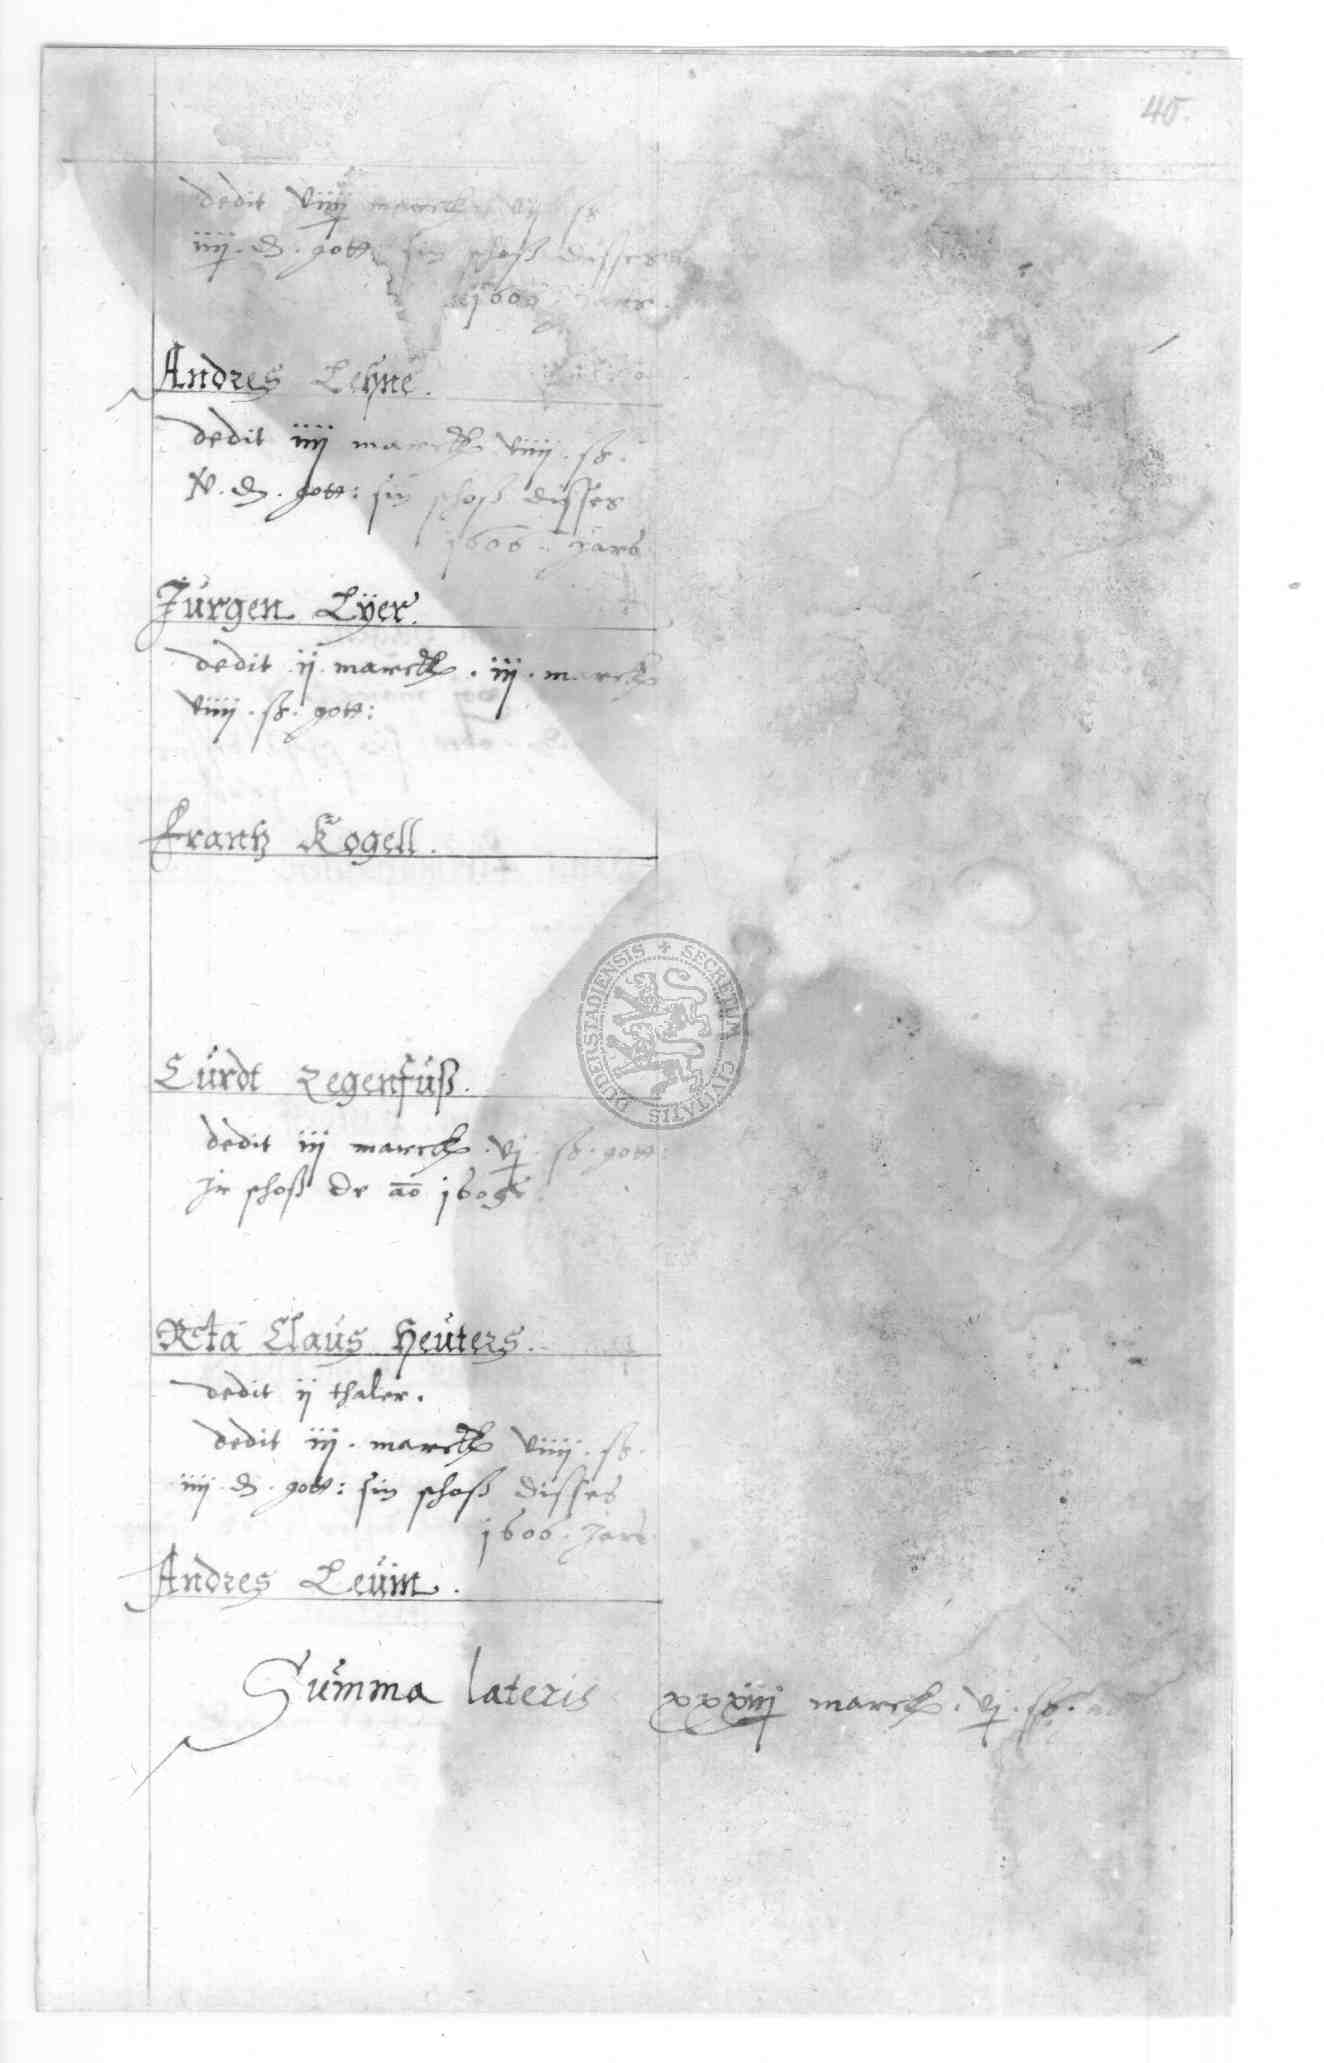 40.
dedit viiij marck vij ß
iiij. d. gott: sin schoß disses
1606 Jars.
Andres Lehne.
dedit iiij marck viiij. ß.
v. d. gott: sin schoß disses
1606. Jars
Jürgen Lÿer.
dedit ij. marck. iij. marck
viiij. ß. gott:
Frantz Kogell.
Curdt Zegenfuß.
dedit iij marck. vj. ß. gott:
Jr schoß de ao
Rcta Claus Heuters.
dedit ij thaler.
dedit iij. marck viiij. ß.
iiij. d. gott: sin schoß disses
1606. Jars
Andres Leüin.
Summa lateris xxxiiij marck. vj. ß.
SECRETUM CIVITATIS DUDERSTADIENSIS